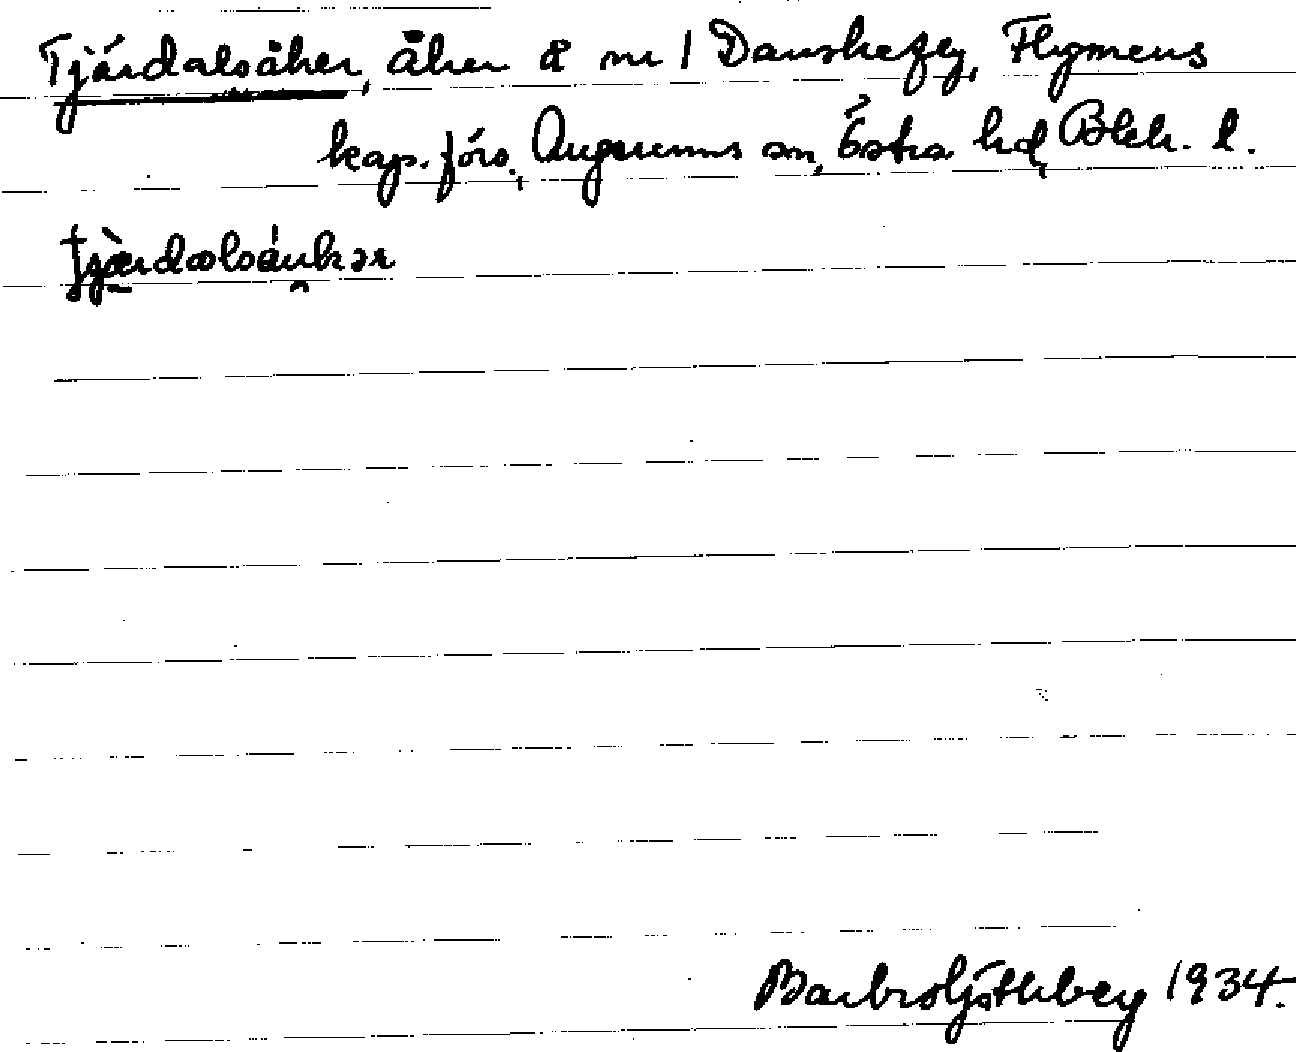 Tjärdalsåker, åker å nr 1 Danskefly, Flymens
kap. förs., Augerums sn, Östra hd, Blek. l.
Barbro Ljöthberg 1934.